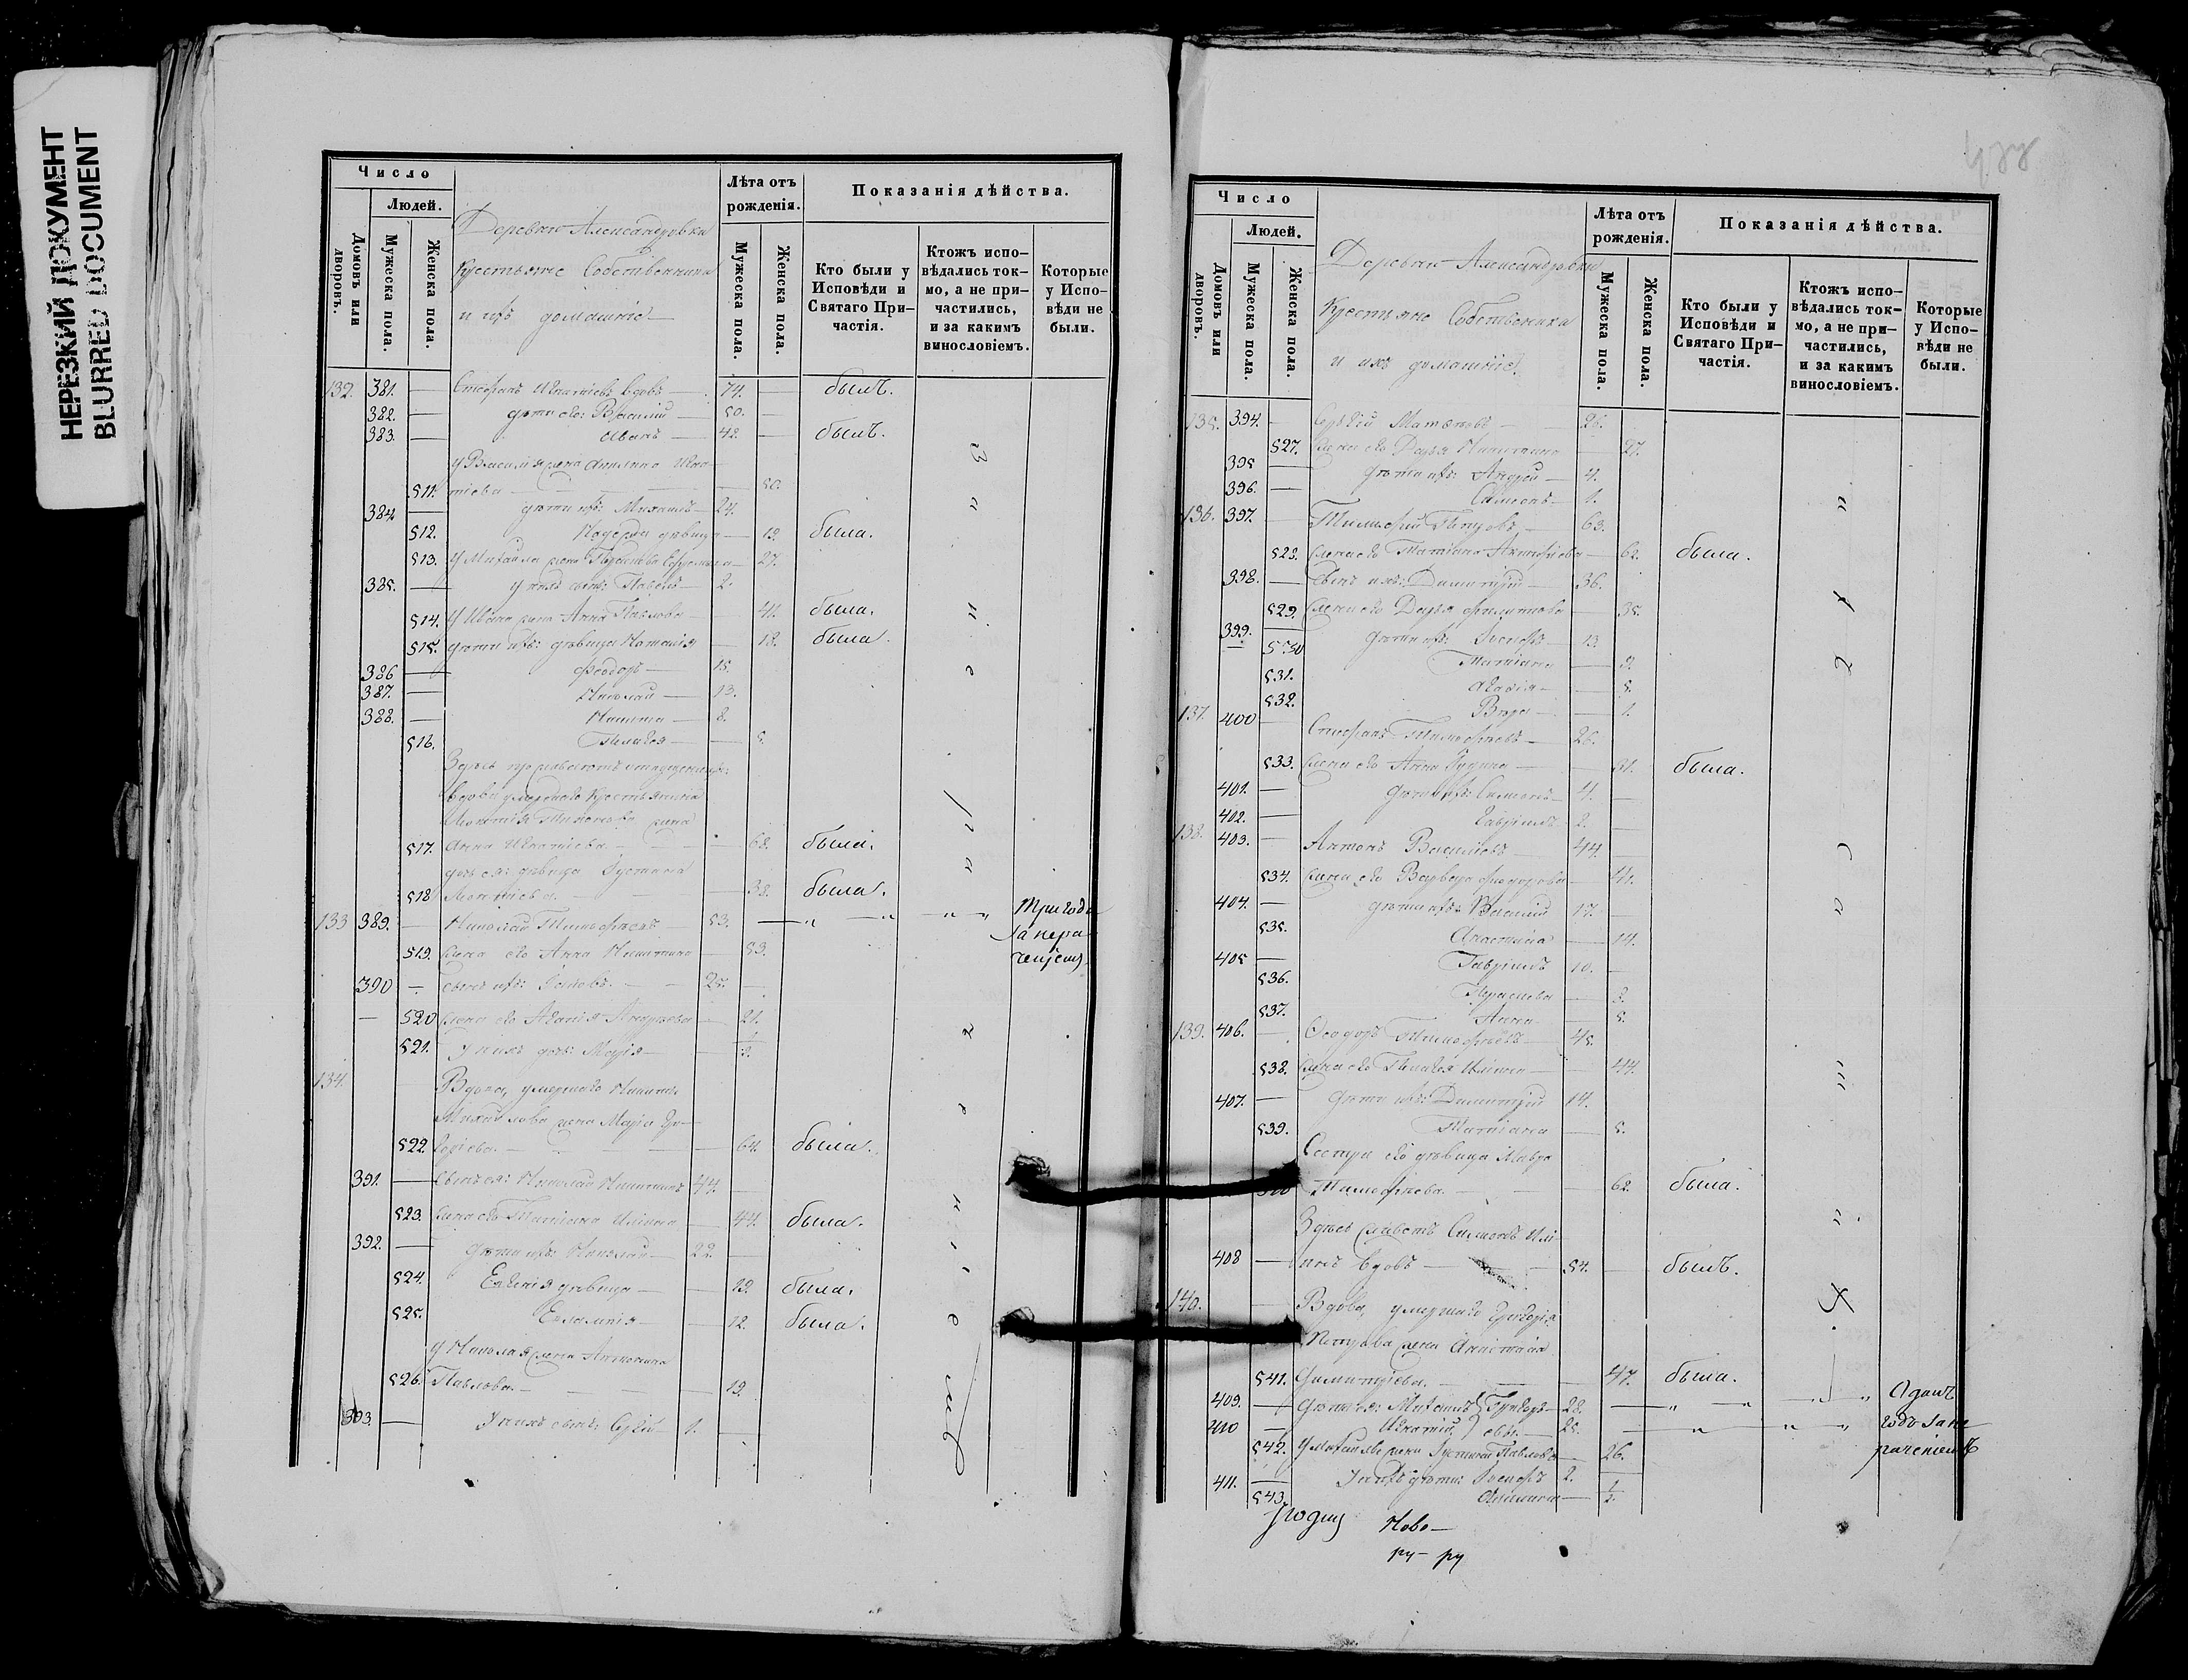 НЕРЕЗКИЙ ДОКУМЕНТ
BLURRED DOCUMENT
Число
Людей.
Домовъ или дворовъ.
Мужеска пола.
Женска пола.
Деревни Александровки
Крестьяне Собственники
и ихъ домашніе
Лѣта отъ рожденія.
Мужеска пола.
Женска пола.
Показанія дѣйства.
Кто были у Исповѣди и Святаго Причастія.
Ктожъ исповѣдались токмо, а не причастились, и за какимъ винословіемъ.
Которые у Исповѣди не были.
132. 381. — Стефанъ Игнатіевъ вдовъ — 74. — былъ.
382. — дѣти его: Василій — 50. —
383. — Иванъ — 42. — былъ.
У Василія жена Игна-
511. тіева — 50.
384. — дѣти ихъ: Михаилъ — 24.
512. дѣвица — 19. была.
513. У Михаила жена — 27.
385. — У нихъ сынъ: Павелъ — 2.
514. У Ивана жена Анна Павлова — 41. была.
515. дѣти ихъ: дѣвица Наталія — 18. была.
386 — Феодоръ — 15.
387. — Николай — 13.
388. — Никита — 8.
516. Пелагея — 5.
вдова умершаго Крестьянина
жена
517. Анна Игнатіева — 68. была.
дочь ея: дѣвица Іустина
518 — 38. была.
133 389. — Николай Тимофеевъ — 53. — Три года
за нера-
519. Жена его Анна Никитина — 53. ченіем
390 — Сынъ ихъ: Іаковъ — 25. —
520 Жена его Агафія Андреева — 21.
521. У нихъ дочь: Марія — 1/2.
134. Вдова, умершаго Никиты
Михайлова жена Марія Гри-
522. горіева. — 64. была.
391. — Сынъ ея: Николай Никитинъ 44. —
523. Жена его Татіана Ильина — 44. была.
392. — Дѣти ихъ: Николай — 22. —
524. Евгенія дѣвица — 19. была.
525. Евлампія — 12. была.
У Николая жена Антонина
526. Павлова. — 19.
393. — У нихъ сынъ: Сергій 1. —
Число
Людей.
Домовъ или дворовъ.
Мужеска пола.
Женска пола.
Деревни Александровки
Крестьяне Собственники
и ихъ домашніе.
Лѣта отъ рожденія.
Мужеска пола.
Женска пола.
Показанія дѣйства.
Кто были у Исповѣди и Святаго Причастія.
Ктожъ исповѣдались токмо, а не причастились, и за какимъ винословіемъ.
Которые у Исповѣди не были.
135. 394. — Сергій — 26.
527. Жена его Дарья Никитина — 27.
395 — Дѣти ихъ: Андрей — 4.
396. — Симеонъ — 1.
136. 397. — Тимофей Петровъ — 63.
528. Жена его Татіана — 62. была.
398. — Сынъ ихъ: Димитрій — 36.
529. Жена его Дарья Филиппова — 35.
399. Дѣти ихъ: Іосифъ — 13.
530 Татіана — 9.
531. Агафія — 5.
532. Вѣра — 1.
137. 400 — Стефанъ Тимофеевъ — 26.
533. Жена его Анна — 31. была.
401. — Дѣти ихъ: Симеонъ — 4. —
402. — Гавріилъ 2. —
138. 403. — Антонъ Васильевъ — 44. —
534. Жена его Варвара Феодорова — 41.
404. — Дѣти ихъ: Василій 17. —
535. Анастасія — 14.
405 — Гавріилъ 10. —
536. Параскева — 8.
537. Анна — 5.
139. 406. — Ѳеодоръ Тимофеевъ — 45.
538. Жена его Пелагея Ильина — 44.
407. — Дѣти ихъ: Димитрій 14.
539. Татіана — 5.
Сестра его дѣвица Мавра
540 Тимофеева. — 62. была.
Здѣсь Симеонъ Иль-
408 — инъ вдовъ — 54. — былъ.
140. — Вдова, умершаго Григорія
Петрова жена Анастасія
541. Димитріева. — 47. была.
409. — Дѣти ея: Михаилъ } — 28. — Одинъ
410 — Игнатій, } — 25. — годъ за не-
542. У Михаила жена Іустина Павлова — 26. раченіемъ
411. — У нихъ дѣти: Іосифъ 2.
543. — 1/2.
Ново —
ру - ру